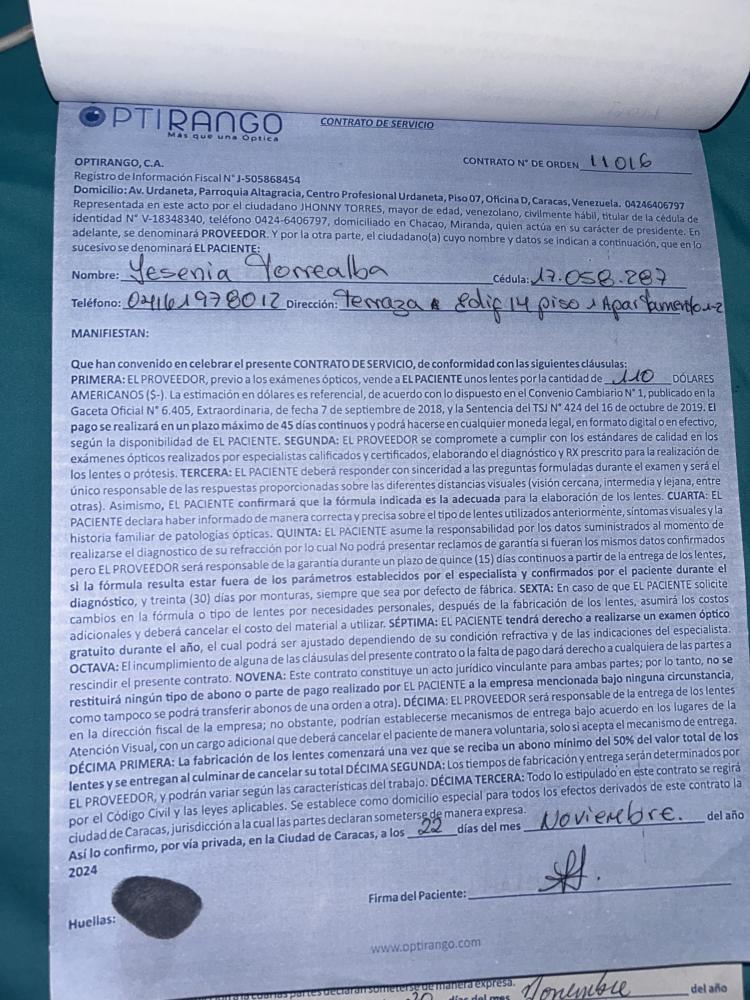 OPTIRANGO
Más que una Óptica
CONTRATO DE SERVICIO
OPTIRANGO, C.A.
CONTRATO N° DE ORDEN 11016
Registro de Información Fiscal N° J-505868454
Domicilio: Av. Urdaneta, Parroquia Altagracia, Centro Profesional Urdaneta, Piso 07, Oficina D, Caracas, Venezuela. 04246406797
Representada en este acto por el ciudadano JHONNY TORRES, mayor de edad, venezolano, civilmente hábil, titular de la cédula de
identidad N° V-18348340, teléfono 0424-6406797, domiciliado en Chacao, Miranda, quien actúa en su carácter de presidente. En
adelante, se denominará PROVEEDOR. Y por la otra parte, el ciudadano(a) cuyo nombre y datos se indican a continuación, que en lo
sucesivo se denominará EL PACIENTE:
Nombre: Yesenia Torrealba Cédula: 17.058.287
Teléfono: 04161978012 Dirección: Terraza Edif 14 piso 1 Apartamento 1-2
MANIFIESTAN:
Que han convenido en celebrar el presente CONTRATO DE SERVICIO, de conformidad con las siguientes cláusulas:
PRIMERA: EL PROVEEDOR, previo a los exámenes ópticos, vende a EL PACIENTE unos lentes por la cantidad de 110 DÓLARES
AMERICANOS ($-). La estimación en dólares es referencial, de acuerdo con lo dispuesto en el Convenio Cambiario N° 1, publicado en la
Gaceta Oficial N° 6.405, Extraordinaria, de fecha 7 de septiembre de 2018, y la Sentencia del TSJ N° 424 del 16 de octubre de 2019. El
pago se realizará en un plazo máximo de 45 días continuos y podrá hacerse en cualquier moneda legal, en formato digital o en efectivo,
según la disponibilidad de EL PACIENTE. SEGUNDA: EL PROVEEDOR se compromete a cumplir con los estándares de calidad en los
exámenes ópticos realizados por especialistas calificados y certificados, elaborando el diagnóstico y RX prescrito para la realización de
los lentes o prótesis. TERCERA: EL PACIENTE deberá responder con sinceridad a las preguntas formuladas durante el examen y será el
único responsable de las respuestas proporcionadas sobre las diferentes distancias visuales (visión cercana, intermedia y lejana, entre
otras). Asimismo, EL PACIENTE confirmará que la fórmula indicada es la adecuada para la elaboración de los lentes. CUARTA: EL
PACIENTE declara haber informado de manera correcta y precisa sobre el tipo de lentes utilizados anteriormente, síntomas visuales y la
historia familiar de patologías ópticas. QUINTA: EL PACIENTE asume la responsabilidad por los datos suministrados al momento de
realizarse el diagnostico de su refracción por lo cual No podrá presentar reclamos de garantía si fueran los mismos datos confirmados
pero EL PROVEEDOR será responsable de la garantía durante un plazo de quince (15) días continuos a partir de la entrega de los lentes,
si la fórmula resulta estar fuera de los parámetros establecidos por el especialista y confirmados por el paciente durante el
diagnóstico, y treinta (30) días por monturas, siempre que sea por defecto de fábrica. SEXTA: En caso de que EL PACIENTE solicite
cambios en la fórmula o tipo de lentes por necesidades personales, después de la fabricación de los lentes, asumirá los costos
adicionales y deberá cancelar el costo del material a utilizar. SÉPTIMA: EL PACIENTE tendrá derecho a realizarse un examen óptico
gratuito durante el año, el cual podrá ser ajustado dependiendo de su condición refractiva y de las indicaciones del especialista.
OCTAVA: El incumplimiento de alguna de las cláusulas del presente contrato o la falta de pago dará derecho a cualquiera de las partes a
rescindir el presente contrato. NOVENA: Este contrato constituye un acto jurídico vinculante para ambas partes; por lo tanto, no se
restituirá ningún tipo de abono o parte de pago realizado por EL PACIENTE a la empresa mencionada bajo ninguna circunstancia,
como tampoco se podrá transferir abonos de una orden a otra). DÉCIMA: EL PROVEEDOR será responsable de la entrega de los lentes
en la dirección fiscal de la empresa; no obstante, podrían establecerse mecanismos de entrega bajo acuerdo en los lugares de la
Atención Visual, con un cargo adicional que deberá cancelar el paciente de manera voluntaria, solo si acepta el mecanismo de entrega.
DÉCIMA PRIMERA: La fabricación de los lentes comenzará una vez que se reciba un abono mínimo del 50% del valor total de los
lentes y se entregan al culminar de cancelar su total DÉCIMA SEGUNDA: Los tiempos de fabricación y entrega serán determinados por
EL PROVEEDOR, y podrán variar según las características del trabajo. DÉCIMA TERCERA: Todo lo estipulado en este contrato se regirá
por el Código Civil y las leyes aplicables. Se establece como domicilio especial para todos los efectos derivados de este contrato la
ciudad de Caracas, jurisdicción a la cual las partes declaran someterse de manera expresa.
Así lo confirmo, por vía privada, en la Ciudad de Caracas, a los 22 días del mes Noviembre. del año
2024
Firma del Paciente:
Huellas:
www.optirango.com
partes declaran someterse de manera expresa.
días del mes Noviembre del año